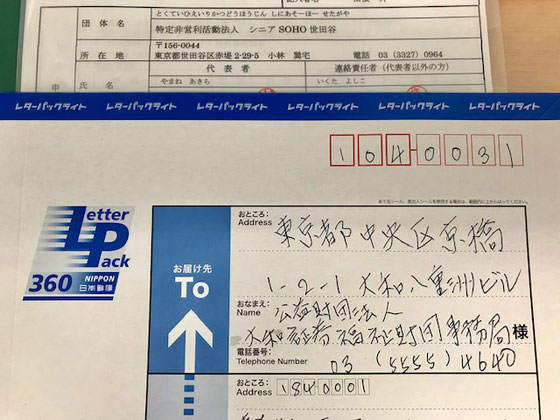 とくていひえいりかつどうほうじん しにあそーほー せたがや
団体名 特定非営利活動法人 シニアSOHO世田谷
〒156-0044
所在地 東京都世田谷区赤堤2-29-5 小林 翼宅 電話 03 (3327) 0964
代表者 連絡責任者（代表者以外の方）
やまね あきら いくた よしこ
申 氏名
レターパックライト レターパックライト レターパックライト レターパックライト レターパックライト レターパックライト
104-0031
あて名シール、差出人シールを使用する場合は、範囲内に上からはってください。
Letter Pack
360 NIPPON 日本郵便
お届け先
To
おところ:
Address
東京都中央区京橋
1-2-1 大和八重洲ビル
おなまえ:
Name
公益財団法人
大和証券福祉財団事務局 様
電話番号:
Telephone Number
03 (5555) 4640
おところ:
Address
1840001